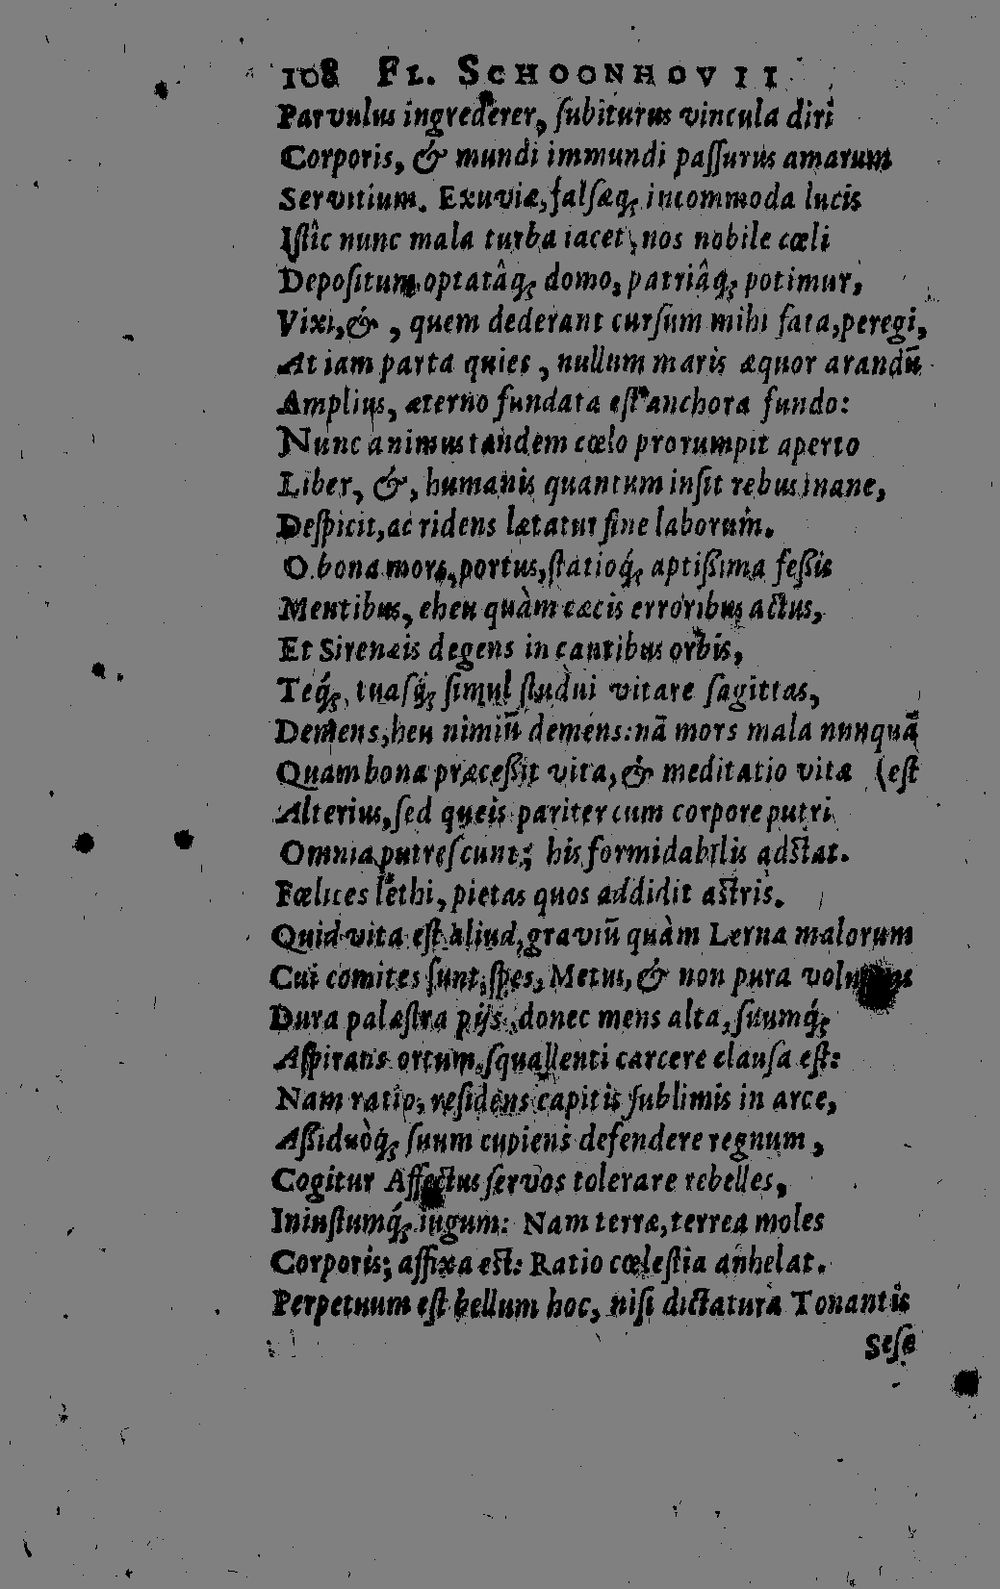 108 FL. SCHOONHOVII
Parvulus ingrederer, ſubiturus vincula diri
Corporis, & mundi immundi paſſurus amarum
Servitium. Exuviæ, falſæq; incommoda lucis
Iſtîc nunc mala turba iacet, nos nobile cœli
Depoſitum, optatâq; domo, patriâq; potimur,
Vixi, & , quem dederant curſum mihi fata, peregi,
At iam parta quies , nullum maris æquor arandū
Amplius, æterno fundata eſt anchora fundo:
Nunc animus tandem cœlo prorumpit aperto
Liber, &, humanis quantum inſit rebus inane,
Deſpicit, ac ridens lætatur fine laborum.
O bona mors, portus, ſtatioq́; aptiſsima feſsis
Mentibus, eheu quàm cæcis erroribus actus,
Et Sirenæis degens in cantibus orbis,
Teq́; tuaſq́; ſimul ſtudui vitare ſagittas,
Demens, heu nimiū demens: nā mors mala nunquā
Quam bona præceſsit vita, & meditatio vitæ (eſt
Alterius, ſed queis pariter cum corpore putri
Omnia putreſcunt; his formidabilis adſtat.
Fœlices lethi, pietas quos addidit aſtris.
Quid vita eſt aliud, graviū quàm Lerna malorum
Cui comites ſunt, ſpes, Metus, & non pura voluptas
Dura palæſtra pijs, donec mens alta, ſuumq́;
Aſpirans ortum, ſquallenti carcere clauſa eſt:
Nam ratio, reſidens capitis ſublimis in arce,
Aſsiduòq́; ſuum cupiens defendere regnum ,
Cogitur Affectus ſervos tolerare rebelles,
Iniuſtumq́; iugum: Nam terræ, terrea moles
Corporis; affixa eſt: Ratio cœleſtia anhelat.
Perpetuum eſt bellum hoc, niſi dictatura Tonantis
Seſe